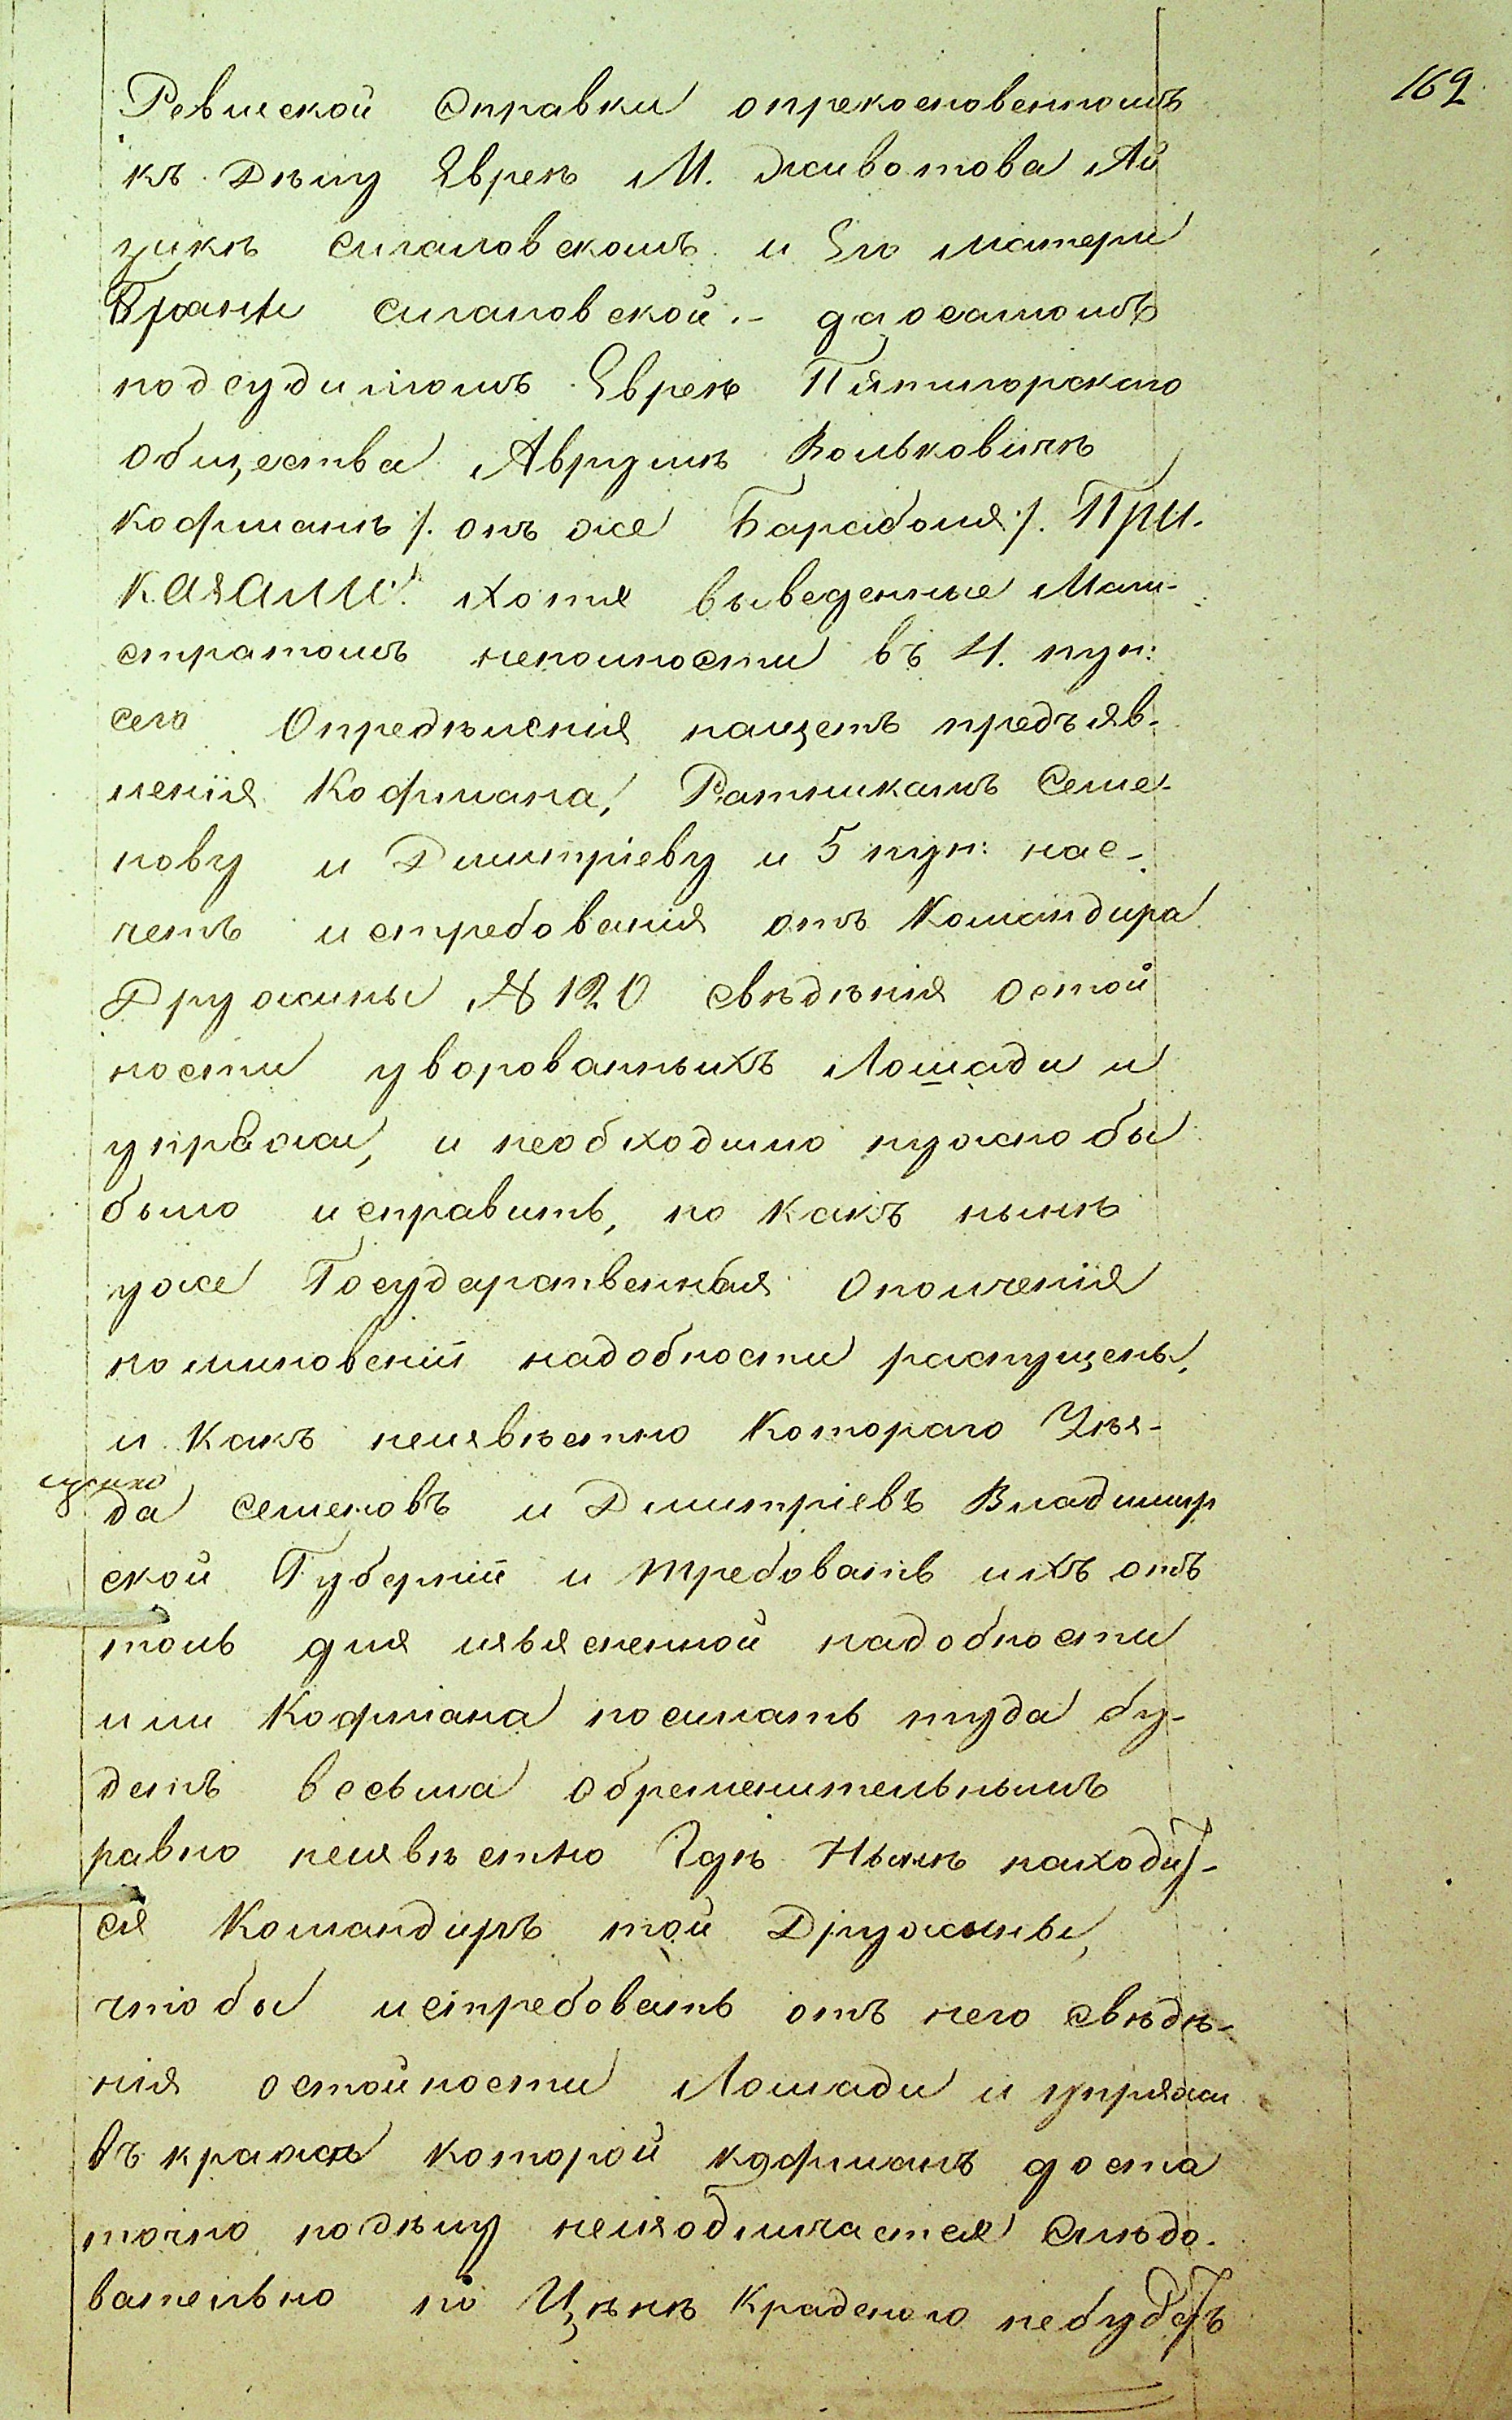 169
Ревизской Справки о прекосновенномъ
къ Дѣлу Еврея М. Животова Ай
зикѣ Сигаловскомъ и Его Матери
Сигаловской. – да о самомъ
подсудимомъ Евреѣ Пятигорскаго
Общества Аврумѣ Вольковичѣ
Кофманѣ /. онъ же Бараболя /. При-
казали: Хотя выведенные Маги-
стратомъ неполности въ 4. пун:
сего Опредѣленія нащетъ предъяв-
ленія Кофмана, Ратникамъ Семе-
нову и Дмитріеву и 5 пун: нас-
четъ истребованія отъ Командира
Дружины № 120 свѣдѣнія о стой
ности уворованныхъ Лошади и
упряжи, и необходимо нужно бы
было исправить, но какъ нынѣ
уже Государственная Ополченія
по миновеніи надобности распущены,
и какъ неизвѣстно Котораго Уѣз-
да Семеновъ и Дмитріевъ Владимір
ской Губерніи и требовать ихъ отъ
толь для изъясненной надобности
или Кофмана посилать туда бу-
детъ весьма обременительнымъ
равно неизвѣстно Гдѣ Нынѣ находит-
ся Командиръ той Дружины,
чтобы истребовать отъ него свѣдѣ-
нія о стойности Лошади и упряжи
въ кражѣ которой Кофманъ доста
точно по дѣлу неизобличается Слѣдо-
вательно по Цѣнѣ Краденого небудетъ